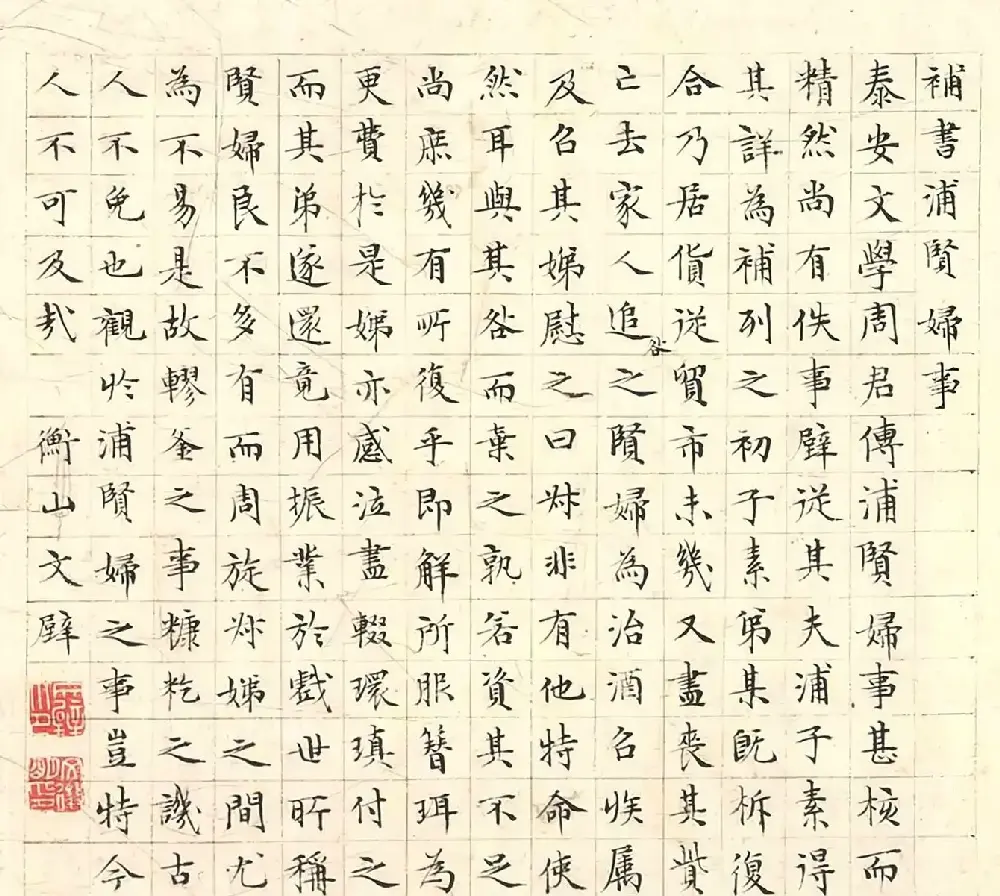 補書浦賢婦事
泰安文學周君傳浦賢婦事甚核而
精然尚有佚事壁從其夫浦子素得
其詳為補列之初子素弟某旣柝復
合乃居貨從貿市未幾又盡喪其貲
亡去家人追咎之賢婦為治酒召族属
及召其娣慰之曰叔非有他特命使
然耳與其咎而棄之孰若資其不足
尚庶幾有所復乎即解所服簪珥為
更費於是娣亦感泣盡輟環瑱付之
而其弟遂還竟用振業於戲世所稱
賢婦良不多有而周旋叔娣之間尤
為不易是故轇釜之事糠籺之譏古
人不免也觀於浦賢婦之事豈特今
人不可及哉 衡山文壁